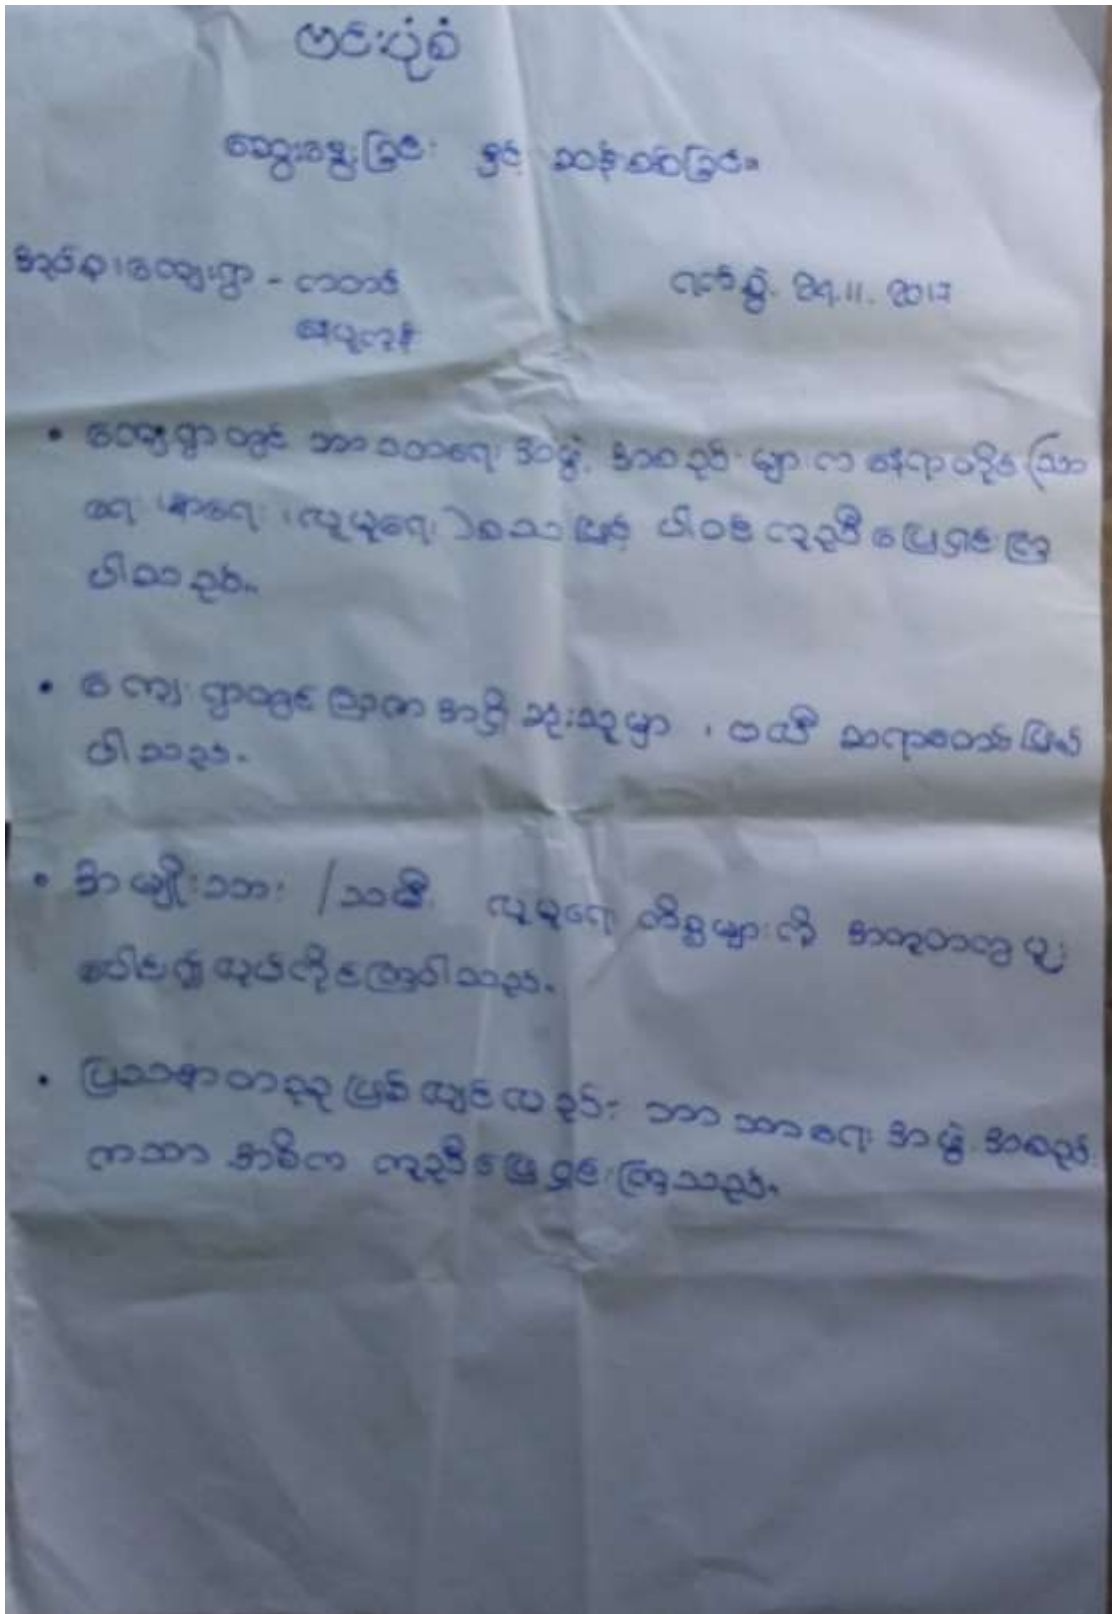 ဗင်းပုံစံ
ဆွေးနွေးခြင်း နှင့် ဆန်းစစ်ခြင်း။
အုပ်စု၊ကျေးရွာ - ကတတ်
နေပူကုန်း
ရက်စွဲ. 29.11. 2017
• ကျေးရွာတွင် ဘာသာရေး အဖွဲ့ အစည်း များ က နေရာတိုင်း (သာ
ရေး၊ နာရေး၊ လူမှုရေး) စသဖြင့် ပါဝင် ကူညီ ဖြေရှင်း ကြ
ပါသည်။
• ကျေးရွာတွင် သြဇာ အရှိ ဆုံးသူမှာ ၊ ဆရာတော် ဖြစ်
ပါသည်။
• အမျိုးသား / သမီး လူမှုရေး ကိစ္စများ ကို အတူတကွ
ပေါင်း၍ လုပ်ကိုင်ကြပါသည်။
• ပြဿနာ တခုခု ဖြစ် လျှင် လည်း ဘာသာရေး အဖွဲ့ အစည်း
ကသာ အဓိက ကူညီ ဖြေရှင်း ကြသည်။